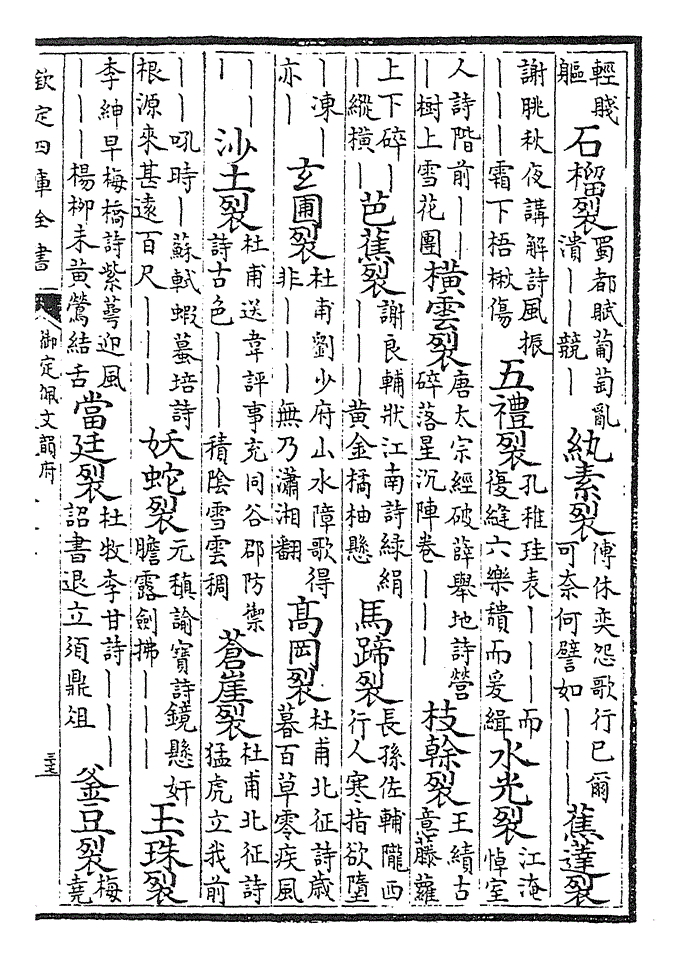 輕賤軀 石榴裂 蜀都賦葡萄亂潰丨丨競丨 紈素裂 傅休奕怨歌行已爾可奈何譬如丨丨丨 蕉薘裂
謝朓秋夜講解詩風振丨丨丨霜下梧楸傷 五禮裂 孔稚珪表丨丨丨而復縫六樂讀而爰緝 水光裂 江淹悼室
人詩階前丨丨丨樹上雪花團 橫雲裂 唐太宗經破薛舉地詩營碎落星沉陣卷丨丨丨 枝榦裂 王績古意藤蘿
上下碎丨丨丨縱橫 芭蕉裂 謝良輔狀江南詩綠絹丨丨丨黃金橘柚懸 馬蹄裂 長孫佐輔隴西行人寒指欲墮
丨凍丨亦丨丨 玄圃裂 杜甫劉少府山水障歌得非丨丨丨無乃瀟湘翻 高岡裂 杜甫北征詩歲暮百草零疾風
丨丨丨丨 沙土裂 杜甫送韋評事充同谷郡防禦詩古色丨丨丨積陰雪雲稠 蒼崖裂 杜甫北征詩猛虎立我前
丨丨吼時丨 蘇軾蝦蟇培詩根源來甚遠百尺丨丨丨 妖蛇裂 元稹諭寶詩鏡懸奸膽露劍拂丨丨丨 玉珠裂
李紳早梅橋詩紫萼迎風丨丨丨楊柳未黃鶯結舌 當廷裂 杜牧李甘詩丨丨丨詔書退立須鼎俎 釜豆裂 梅堯
欽定四庫全書 御定佩文韻府 三十七